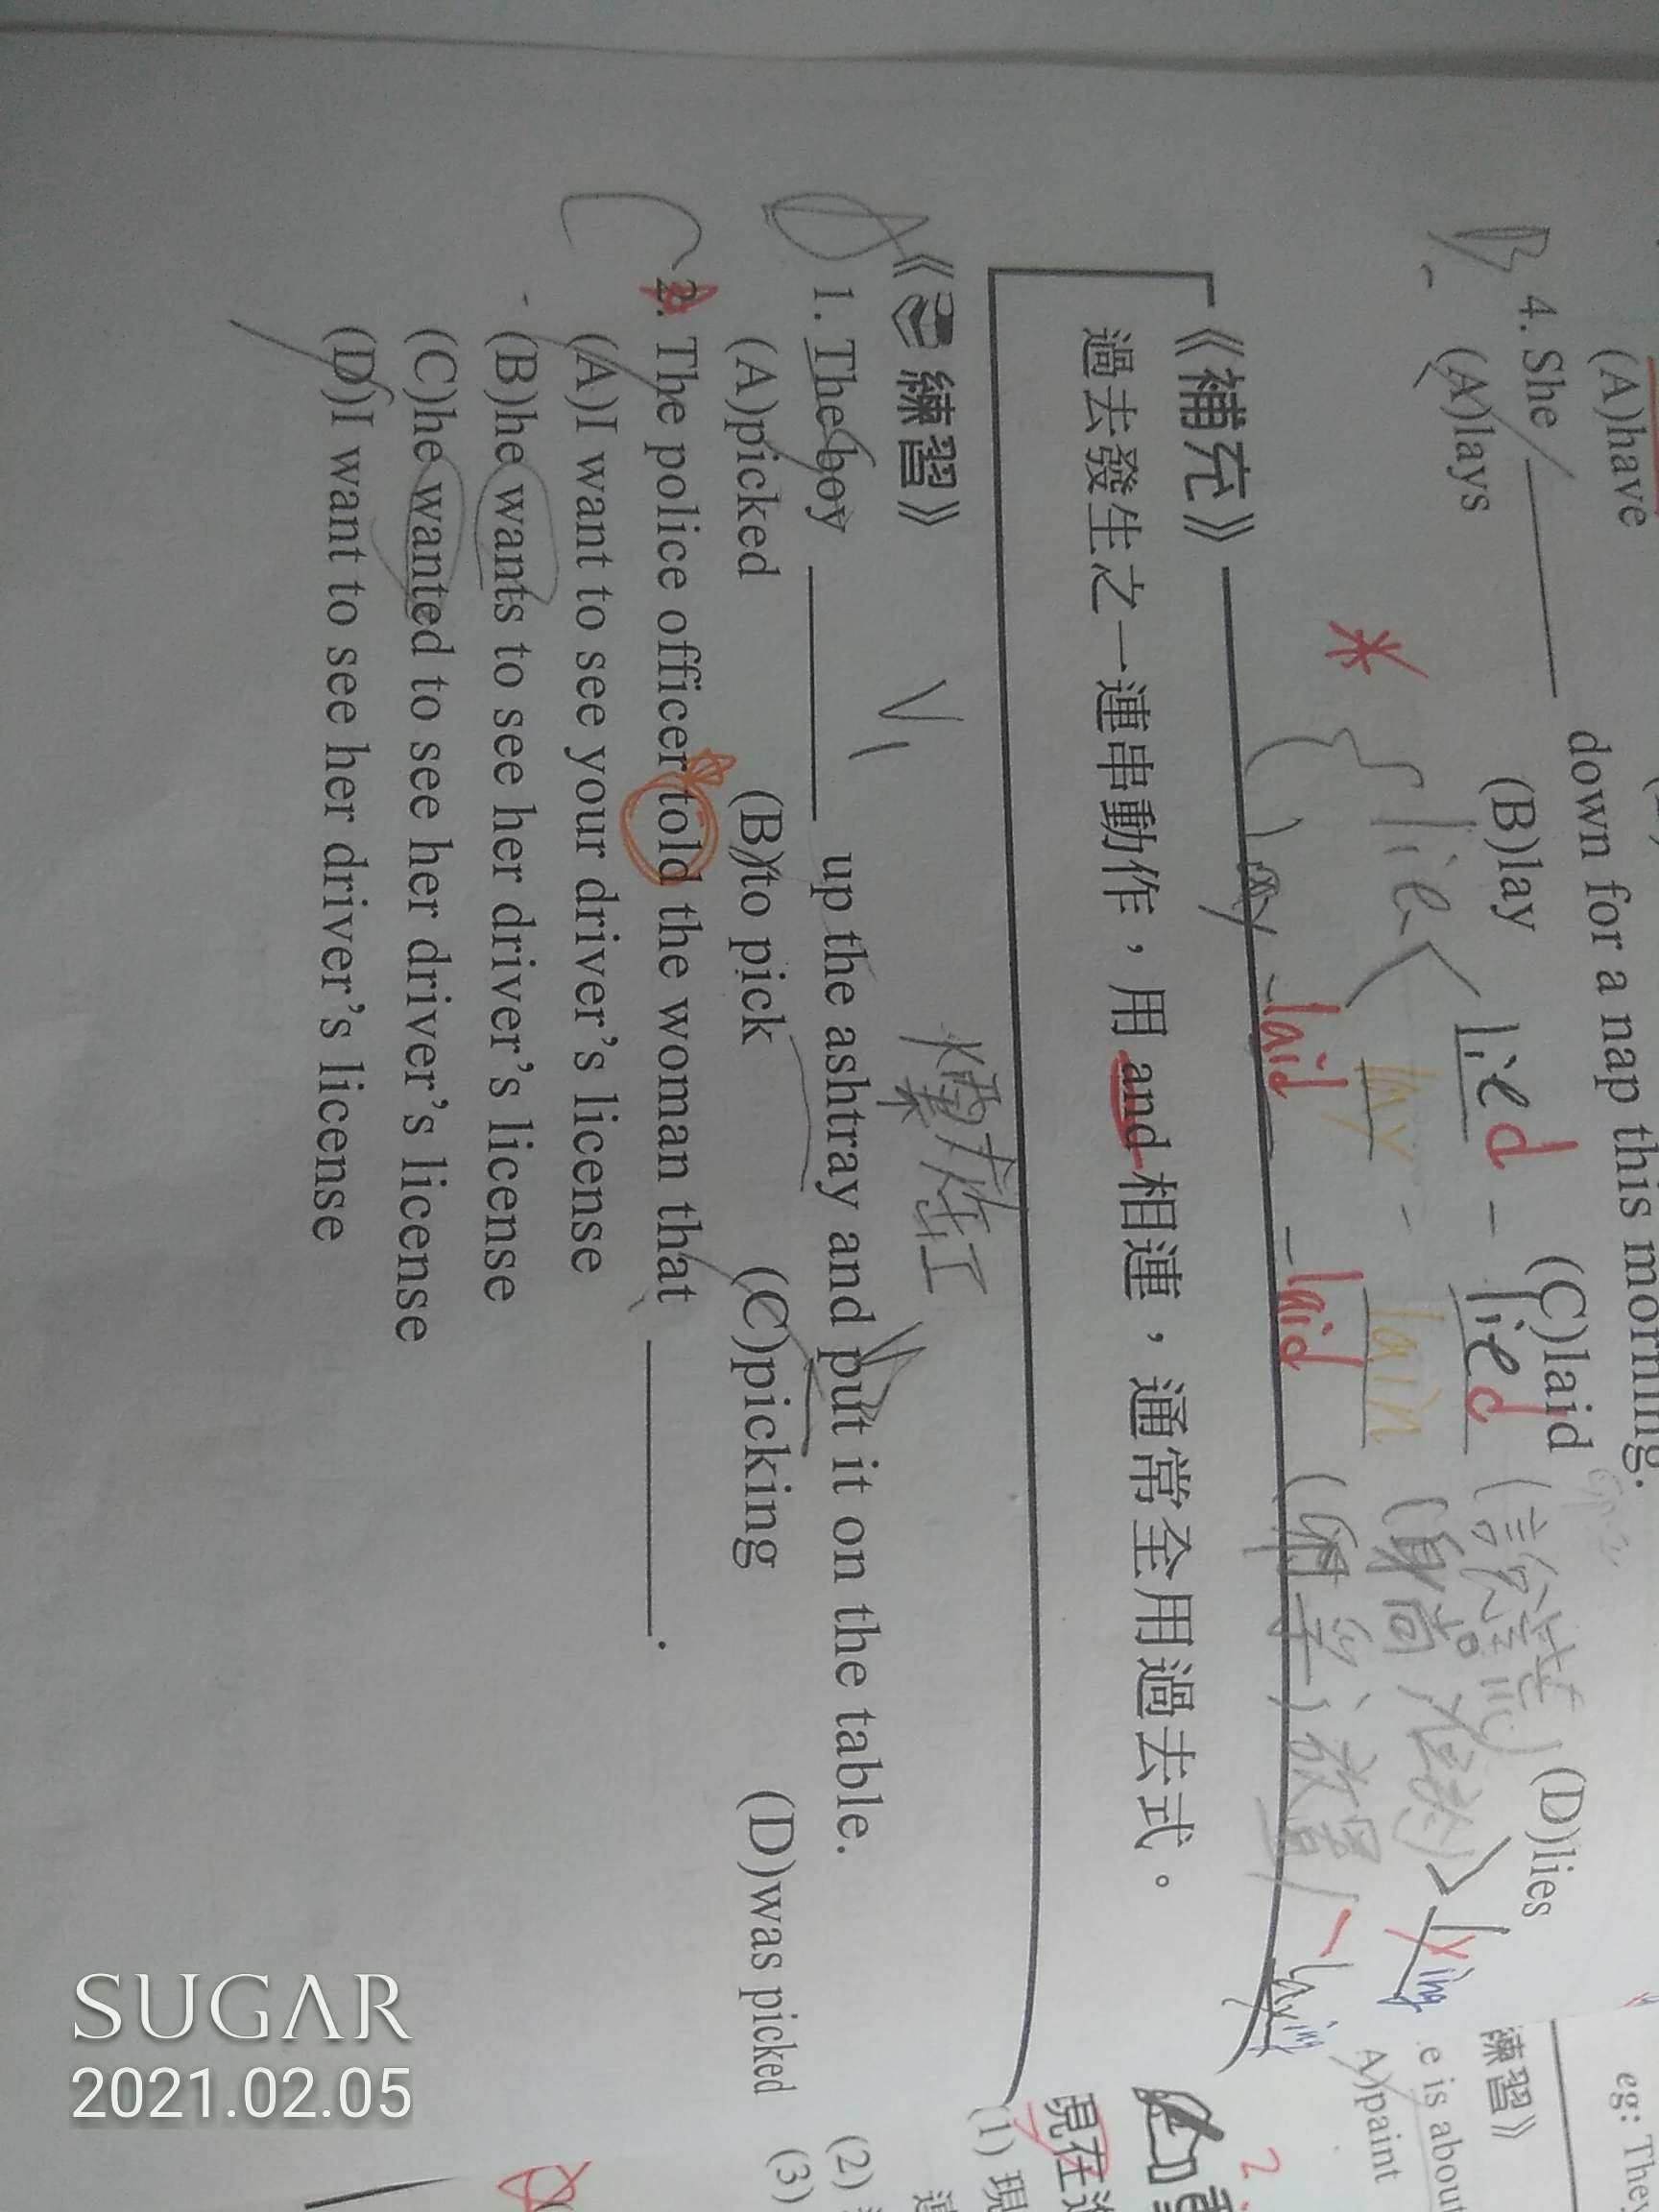 (A)have
4. She ______ down for a nap this morning.
(A)lays (B)lay (C)laid (D)lies
lie
lied - lied (說謊)
lay - lain
lying
lay - laid - laid
laying
《補充》
過去發生之一連串動作，用 and 相連，通常全用過去式。
《練習》
1. The boy ______ up the ashtray and put it on the table.
(A)picked (B)to pick (C)picking (D)was picked
2. The police officer told the woman that ______.
(A)I want to see your driver's license
(B)he wants to see her driver's license
(C)he wanted to see her driver's license
(D)I want to see her driver's license
eg: They
練習》
e is about
A)paint
現在
(1) 現
(2)
(3)
SUGAR
2021.02.05